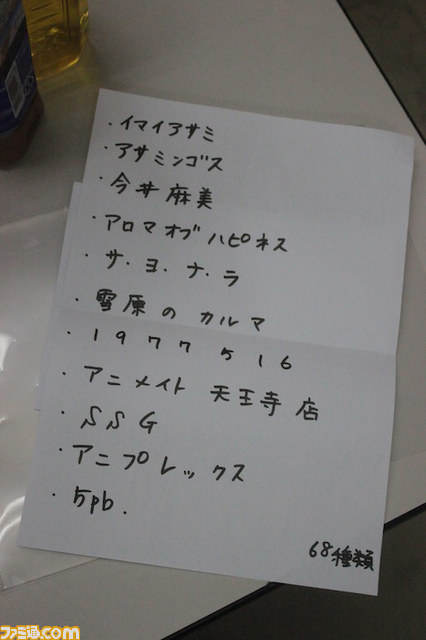 ・イマイアサミ
・アサミンゴス
・今井麻美
・アロマオブハピネス
・サ・ヨ・ナ・ラ
・雪原のカルマ
・1977 516
・アニメイト 天王寺店
・SSG
・アニプレックス
・5pb.
68種類
ファミ通.com